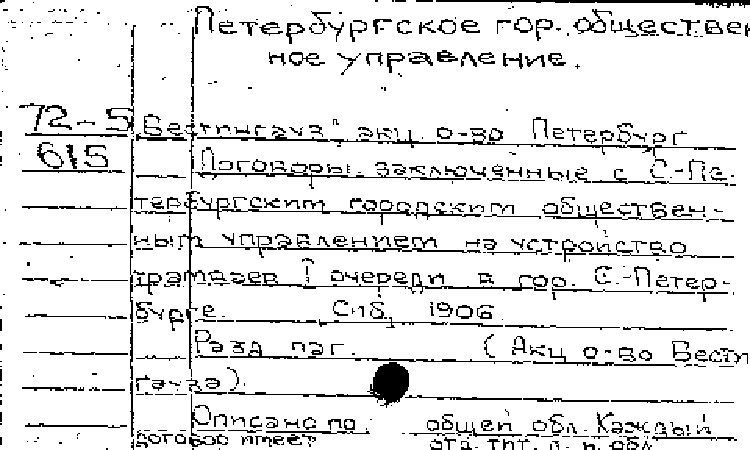 Петербургское гор. обществен
ное управление.
72-5 Вестингауз" акц. о-во Петербург
615 Договоры, заключенные с С.-Пе-
тербургским городским обществен-
ным управлением на устройство
трамваев I очереди в гор. С.-Петер-
бурге. Спб, 1906
Разд паг. (Акц о-во Вести
гауза).
Описано по общей обл. Каждый
договор имеет отд. тит. л. и обл